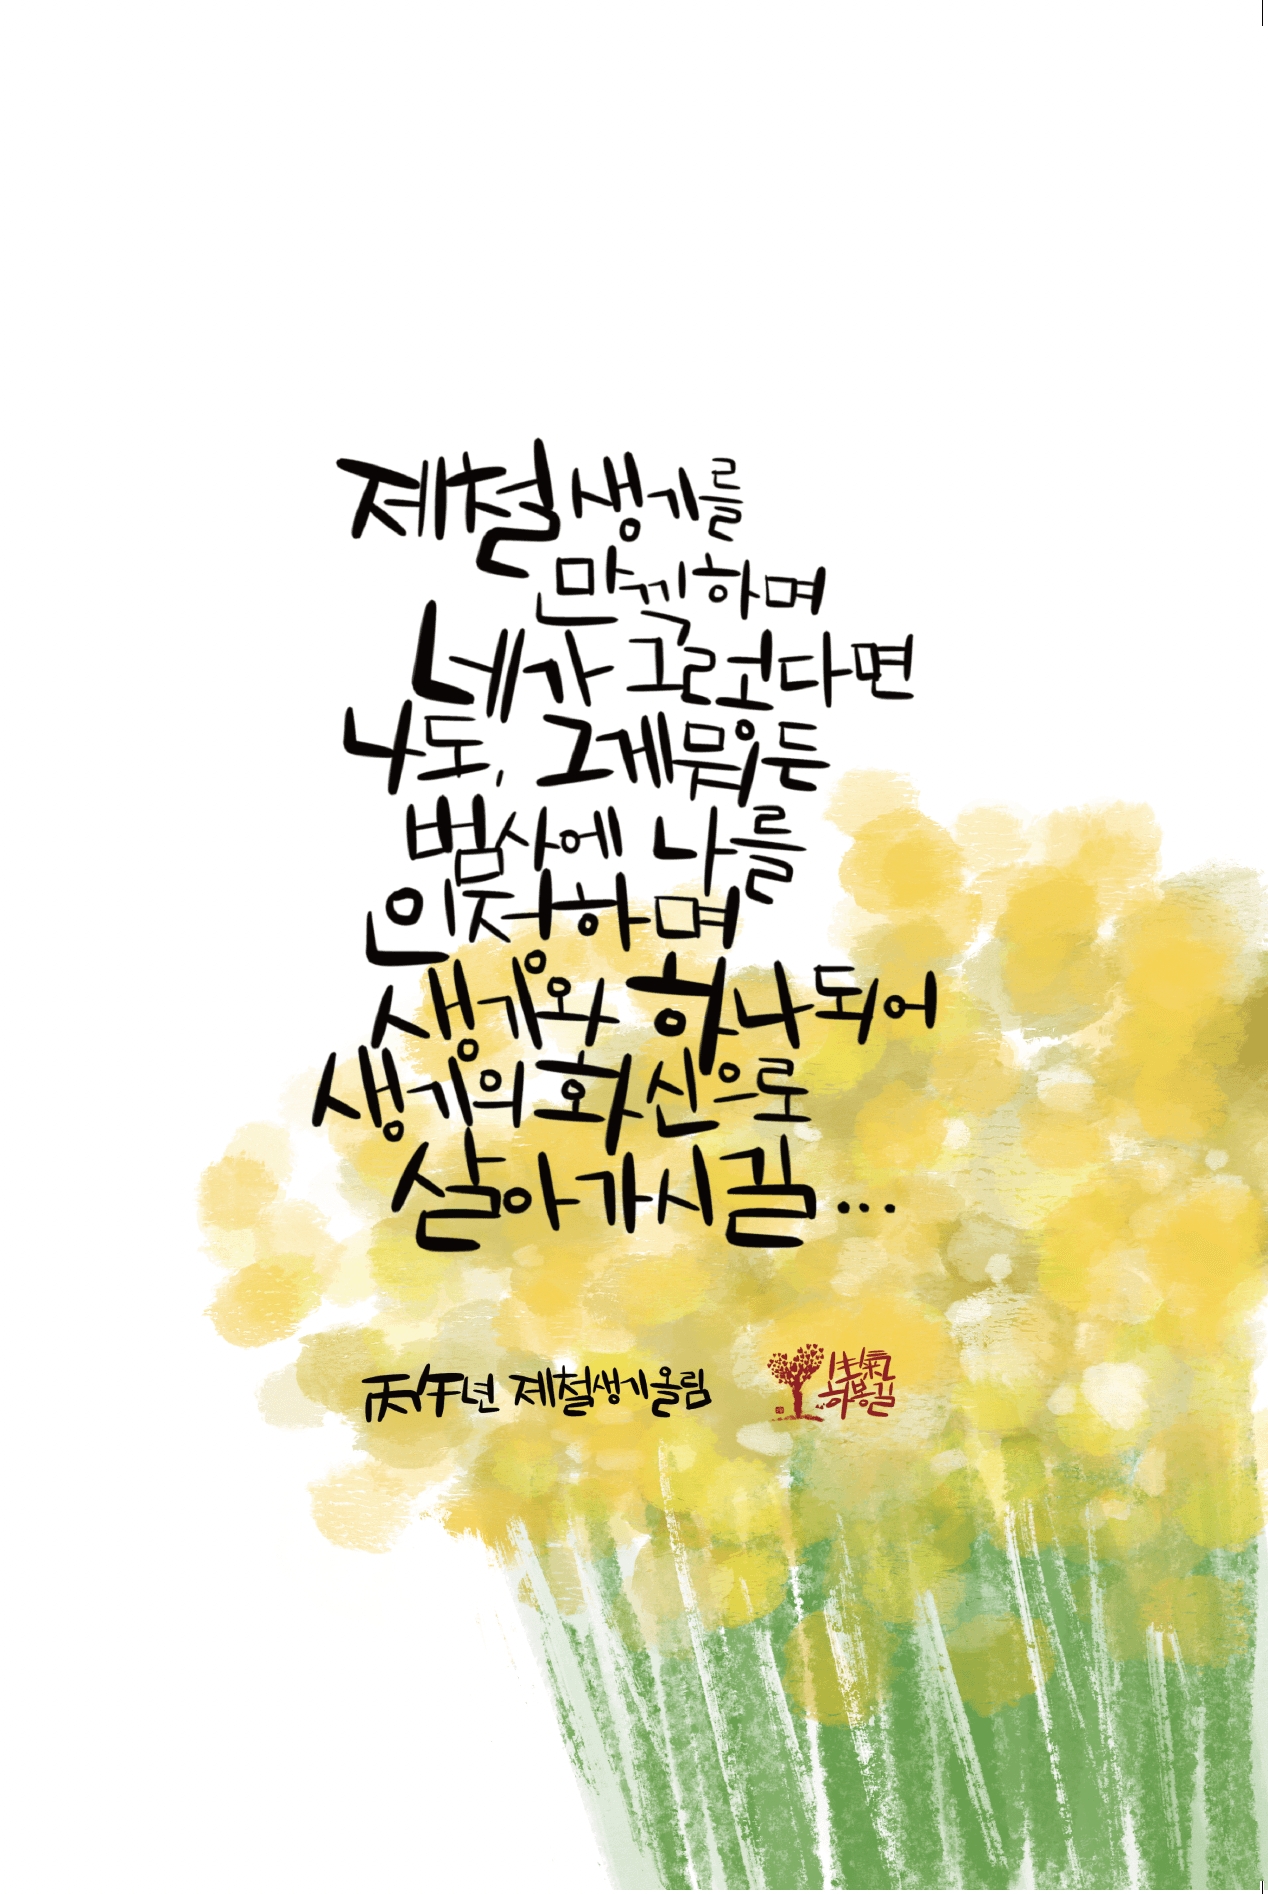 제철생기를
만끽하며
네가 그렇다면
나도, 그게뭐든
범사에 나를
인정하며
생기와 하나되어
생기의 화신으로
살아가시길...
丙午년 제철생기올림
生氣
하봉길